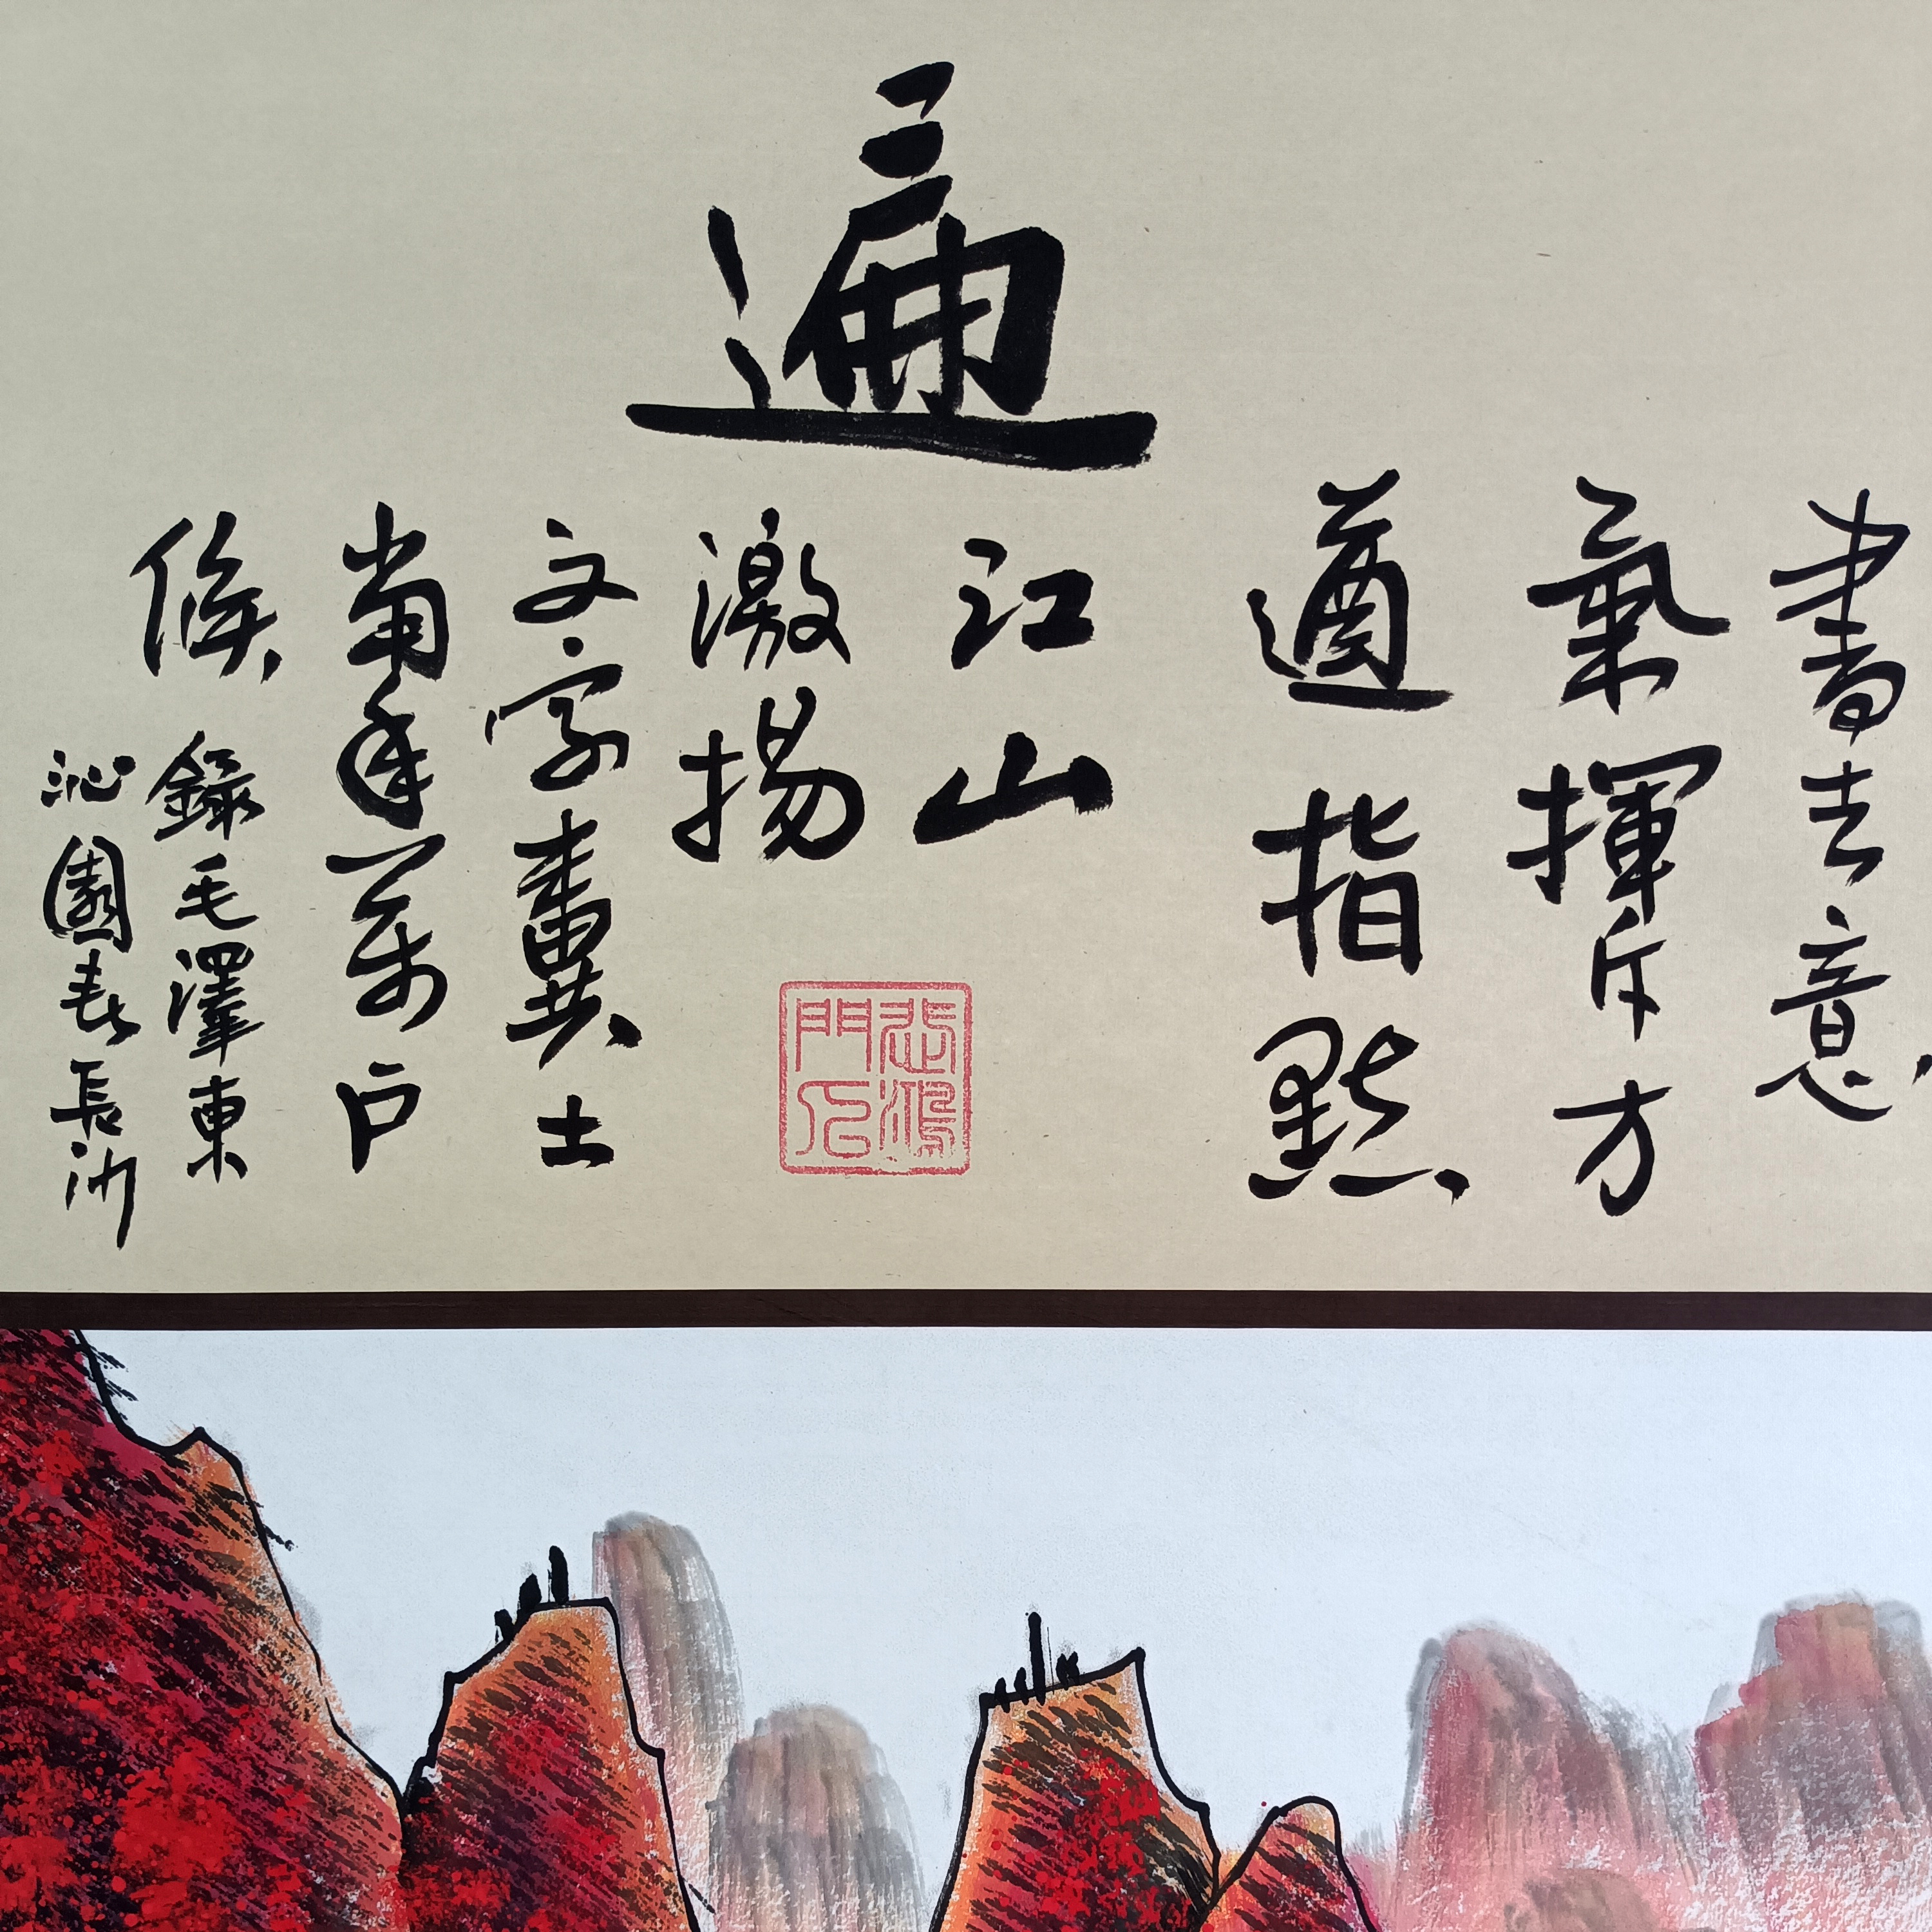 遍
書生意
氣揮斥方
遒指點
江山
激揚
文字糞土
當年萬戶
侯
錄毛澤東
沁園春長沙
悲鴻
門人